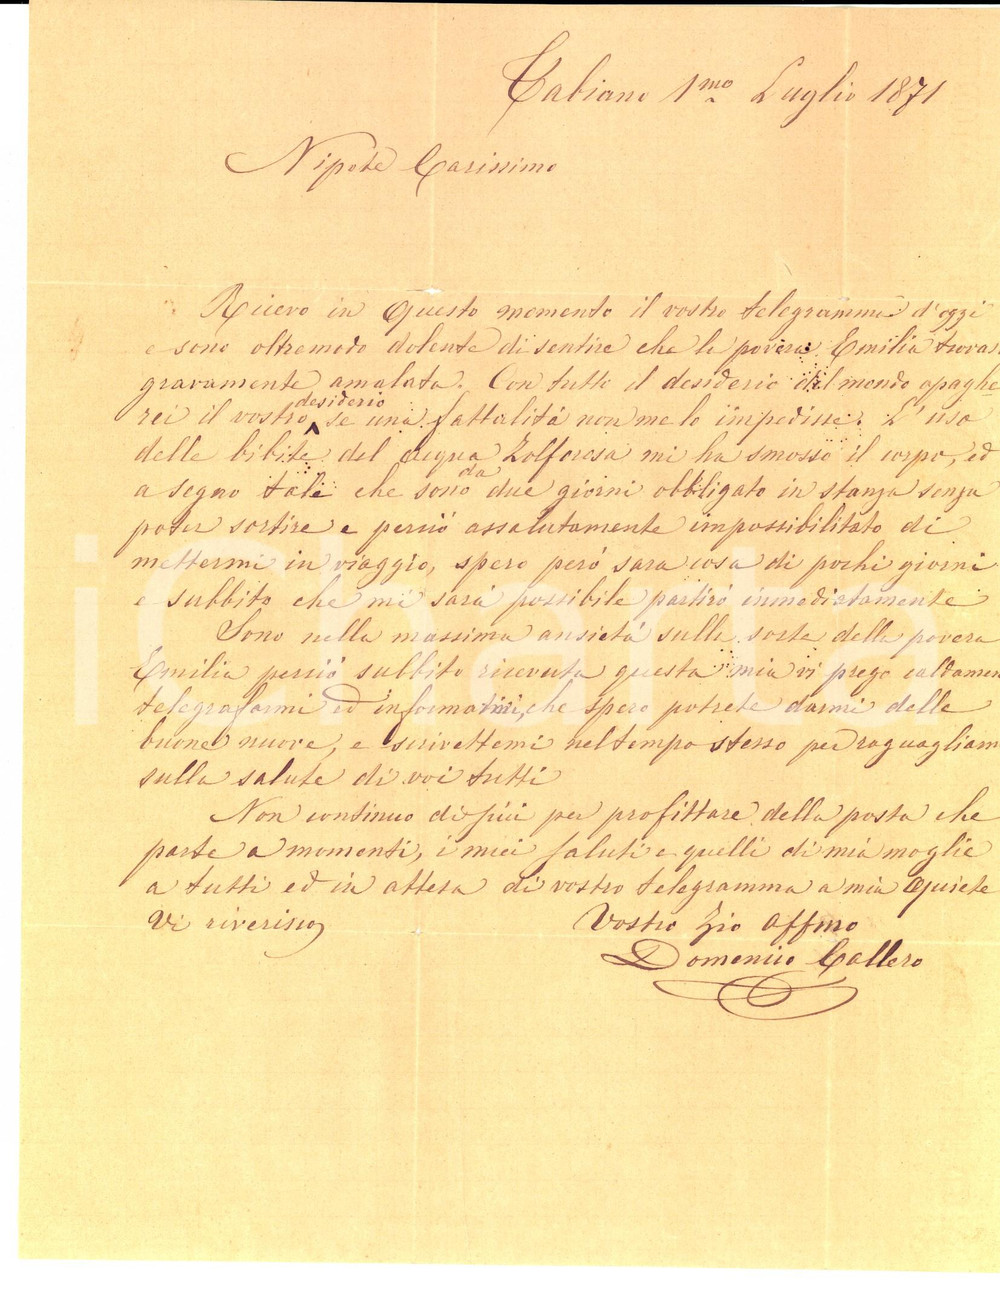 Tabiano 1mo Luglio 1871
Nipote Carissimo
Ricevo in questo momento il vostro telegramma d'oggi
e sono oltremodo dolente di sentire che la povera Emilia trova
gravamente amalata. Con tutto il desiderio del mondo apaghe
desiderio
rei il vostro se una fattalitá non me lo impedisse. L'uso
delle bibite del acqua Zolforosa mi ha smosso il corpo, ed
a segno tale che sono da due giorni obbligato in stanza senza
poter sortire e perció assolutamente impossibilitato di
mettermi in viaggio, spero peró sara cosa di pochi giorni
e subbito che mi sará possibile partiró immediatamente
Sono nella massima ansietá sulla sorte della povera
Emilia perció subbito ricevuta questa mia vi prego caldamen
telegrafarmi ed informarmi, che spero potrete darmi delle
buone nuove, e scrivettemi nel tempo stesso per raguagliarm
sulla salute di voi tutti
Non continuo di piú per profittare della posta che
parte a momenti, i miei saluti e quelli di mia moglie
a tutti ed in attesa di vostro telegramma a mia quiete
Vi riverisco
Vostro Zio Affmo
Domenico Callero
iCharta